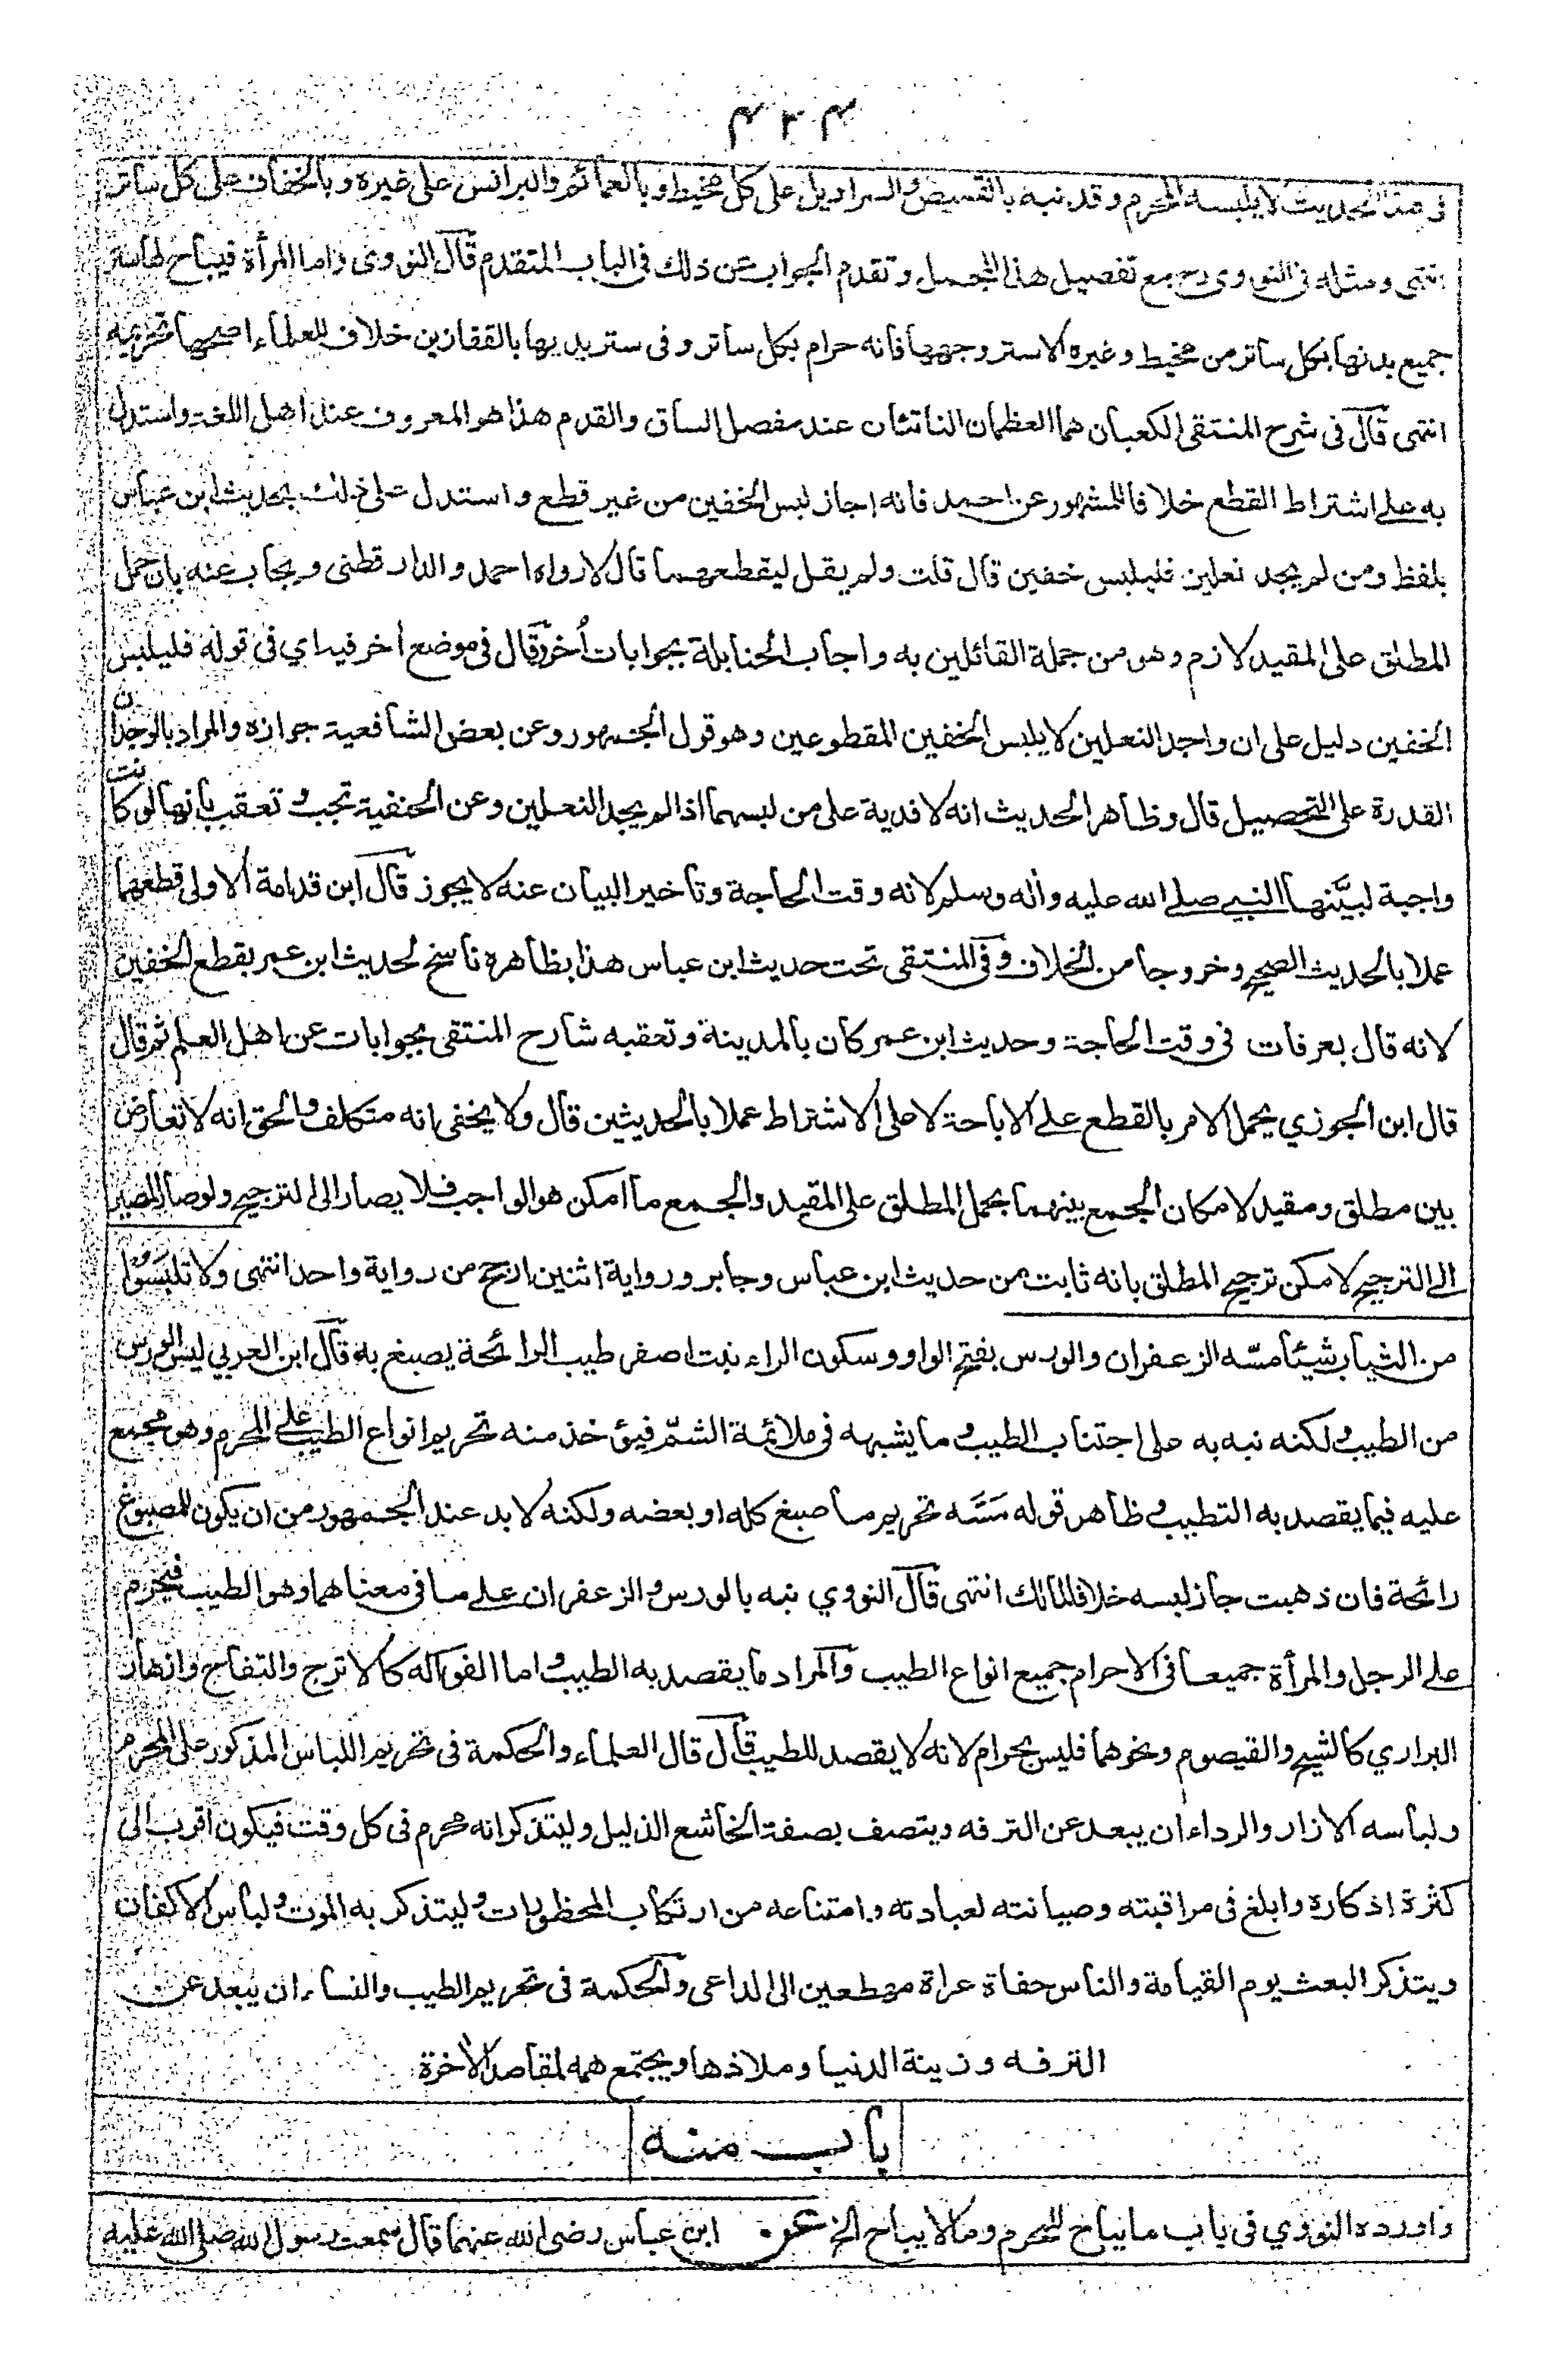 ٤٦٤
فى هذا الحديث لا يلبسه المحرم وقد نبه بالقميص والسراويل على كل مخيط وبالعمائم والبرانس على غيره وبالخفاف على كل ساتر
انتهى ومثله فى النووى رح مع تفصيل هذا المجمل وتقدم الجواب عن ذلك فى الباب المتقدم قال النووى واما المرأة فيباح لها ستر
جميع بدنها بكل ساتر من مخيط وغيره الا ستر وجهها فانه حرام بكل ساتر وفى ستر يديها بالقفازين خلاف للعلماء اصحها تحريمه
انتهى قال فى شرح المنتقى الكعبان هما العظمان الناتئان عند مفصل الساق والقدم هذا هو المعروف عند اهل اللغة واستدل
به على اشتراط القطع خلافا للمشهور عن احمد فانه اجاز لبس الخفين من غير قطع واستدل على ذلك بحديث ابن عباس
بلفظ ومن لم يجد نعلين فليلبس خفين قال قلت ولم يقل ليقطعهما قال لا رواه احمد والدارقطنى ويجاب عنه بان حمل
المطلق على المقيد لازم وهو من جملة القائلين به واجاب الحنابلة بجوابات أخر وقال فى موضع أخر فيه اي فى قوله فليلبس
الخفين دليل على ان واجد النعلين لا يلبس الخفين المقطوعين وهو قول الجمهور وعن بعض الشافعية جوازه والمراد بالوجدان
القدرة على التحصيل قال وظاهر الحديث انه لا فدية على من لبسهما اذا لم يجد النعلين وعن الحنفية تجب وتعقب بأنها لو كانت
واجبة لبيَّنها النبي صلى الله عليه وأله وسلم لانه وقت الحاجة وتأخير البيان عنه لا يجوز قال ابن قدامة الاولى قطعهما
عملا بالحديث الصحيح وخروجا من الخلاف وفى المنتقى تحت حديث ابن عباس هذا بظاهره ناسخ لحديث ابن عمر بقطع الخفين
لانه قال بعرفات فى وقت الحاجة وحديث ابن عمر كان بالمدينة وتعقبه شارح المنتقى بجوابات عن اهل العلم ثم قال
قال ابن الجوزي يحمل الامر بالقطع على الاباحة لا على الاشتراط عملا بالحديثين قال ولا يخفى انه متكلف والحق انه لا تعارض
بين مطلق ومقيد لامكان الجمع بينهما بحمل المطلق على المقيد والجمع ما امكن هو الواجب فلا يصار الى الترجيح ولو صار المصير
الى الترجيح لامكن ترجيح المطلق بانه ثابت من حديث ابن عباس وجابر ورواية اثنين ارجح من رواية واحد انتهى ولا تلبَسُوا
من الثياب شيئا مسّه الزعفران والورس بفتح الواو وسكون الراء نبت اصفر طيب الرائحة يصبغ به قال ابن العربي ليس الورس
من الطيب ولكنه نبه به على اجتناب الطيب وما يشبهه فى ملائمة الشمّ فيؤخذ منه تحريم انواع الطيب على المحرم وهو مجمع
عليه فيما يقصد به التطيب وظاهر قوله مَسَّه تحريم ما صبغ كله او بعضه ولكنه لا بد عند الجمهور من ان يكون للمصبوغ
رائحة فان ذهبت جاز لبسه خلافا لمالك انتهى قال النووي نبه بالورس والزعفران على ما فى معناهما وهو الطيب فيحرم
على الرجل والمرأة جميعا فى الاحرام جميع انواع الطيب والمراد ما يقصد به الطيب واما الفواكه كالاترج والتفاح وازهار
البراري كالشيح والقيصوم ونحوهما فليس بحرام لانه لا يقصد للطيب قال قال العلماء والحكمة فى تحريم اللباس المذكور على المحرم
ولباسه الازار والرداء ان يبعد عن الترفه ويتصف بصفة الخاشع الذليل وليتذكر انه محرم فى كل وقت فيكون اقرب الى
كثرة اذكاره وابلغ فى مراقبته وصيانته لعبادته وامتناعه من ارتكاب المحظورات وليتذكر به الموت ولباس الاكفان
ويتذكر البعث يوم القيامة والناس حفاة عراة مهطعين الى الداعى والحكمة فى تحريم الطيب والنساء ان يبعد عن
الترفه وزينة الدنيا وملاذها ويجتمع همه لمقاصد الأخرة
باب منه
واورده النووي فى باب ما يباح للمحرم وما لا يباح الخ عن ابن عباس رضى الله عنهما قال سمعت رسول الله صلى الله عليه